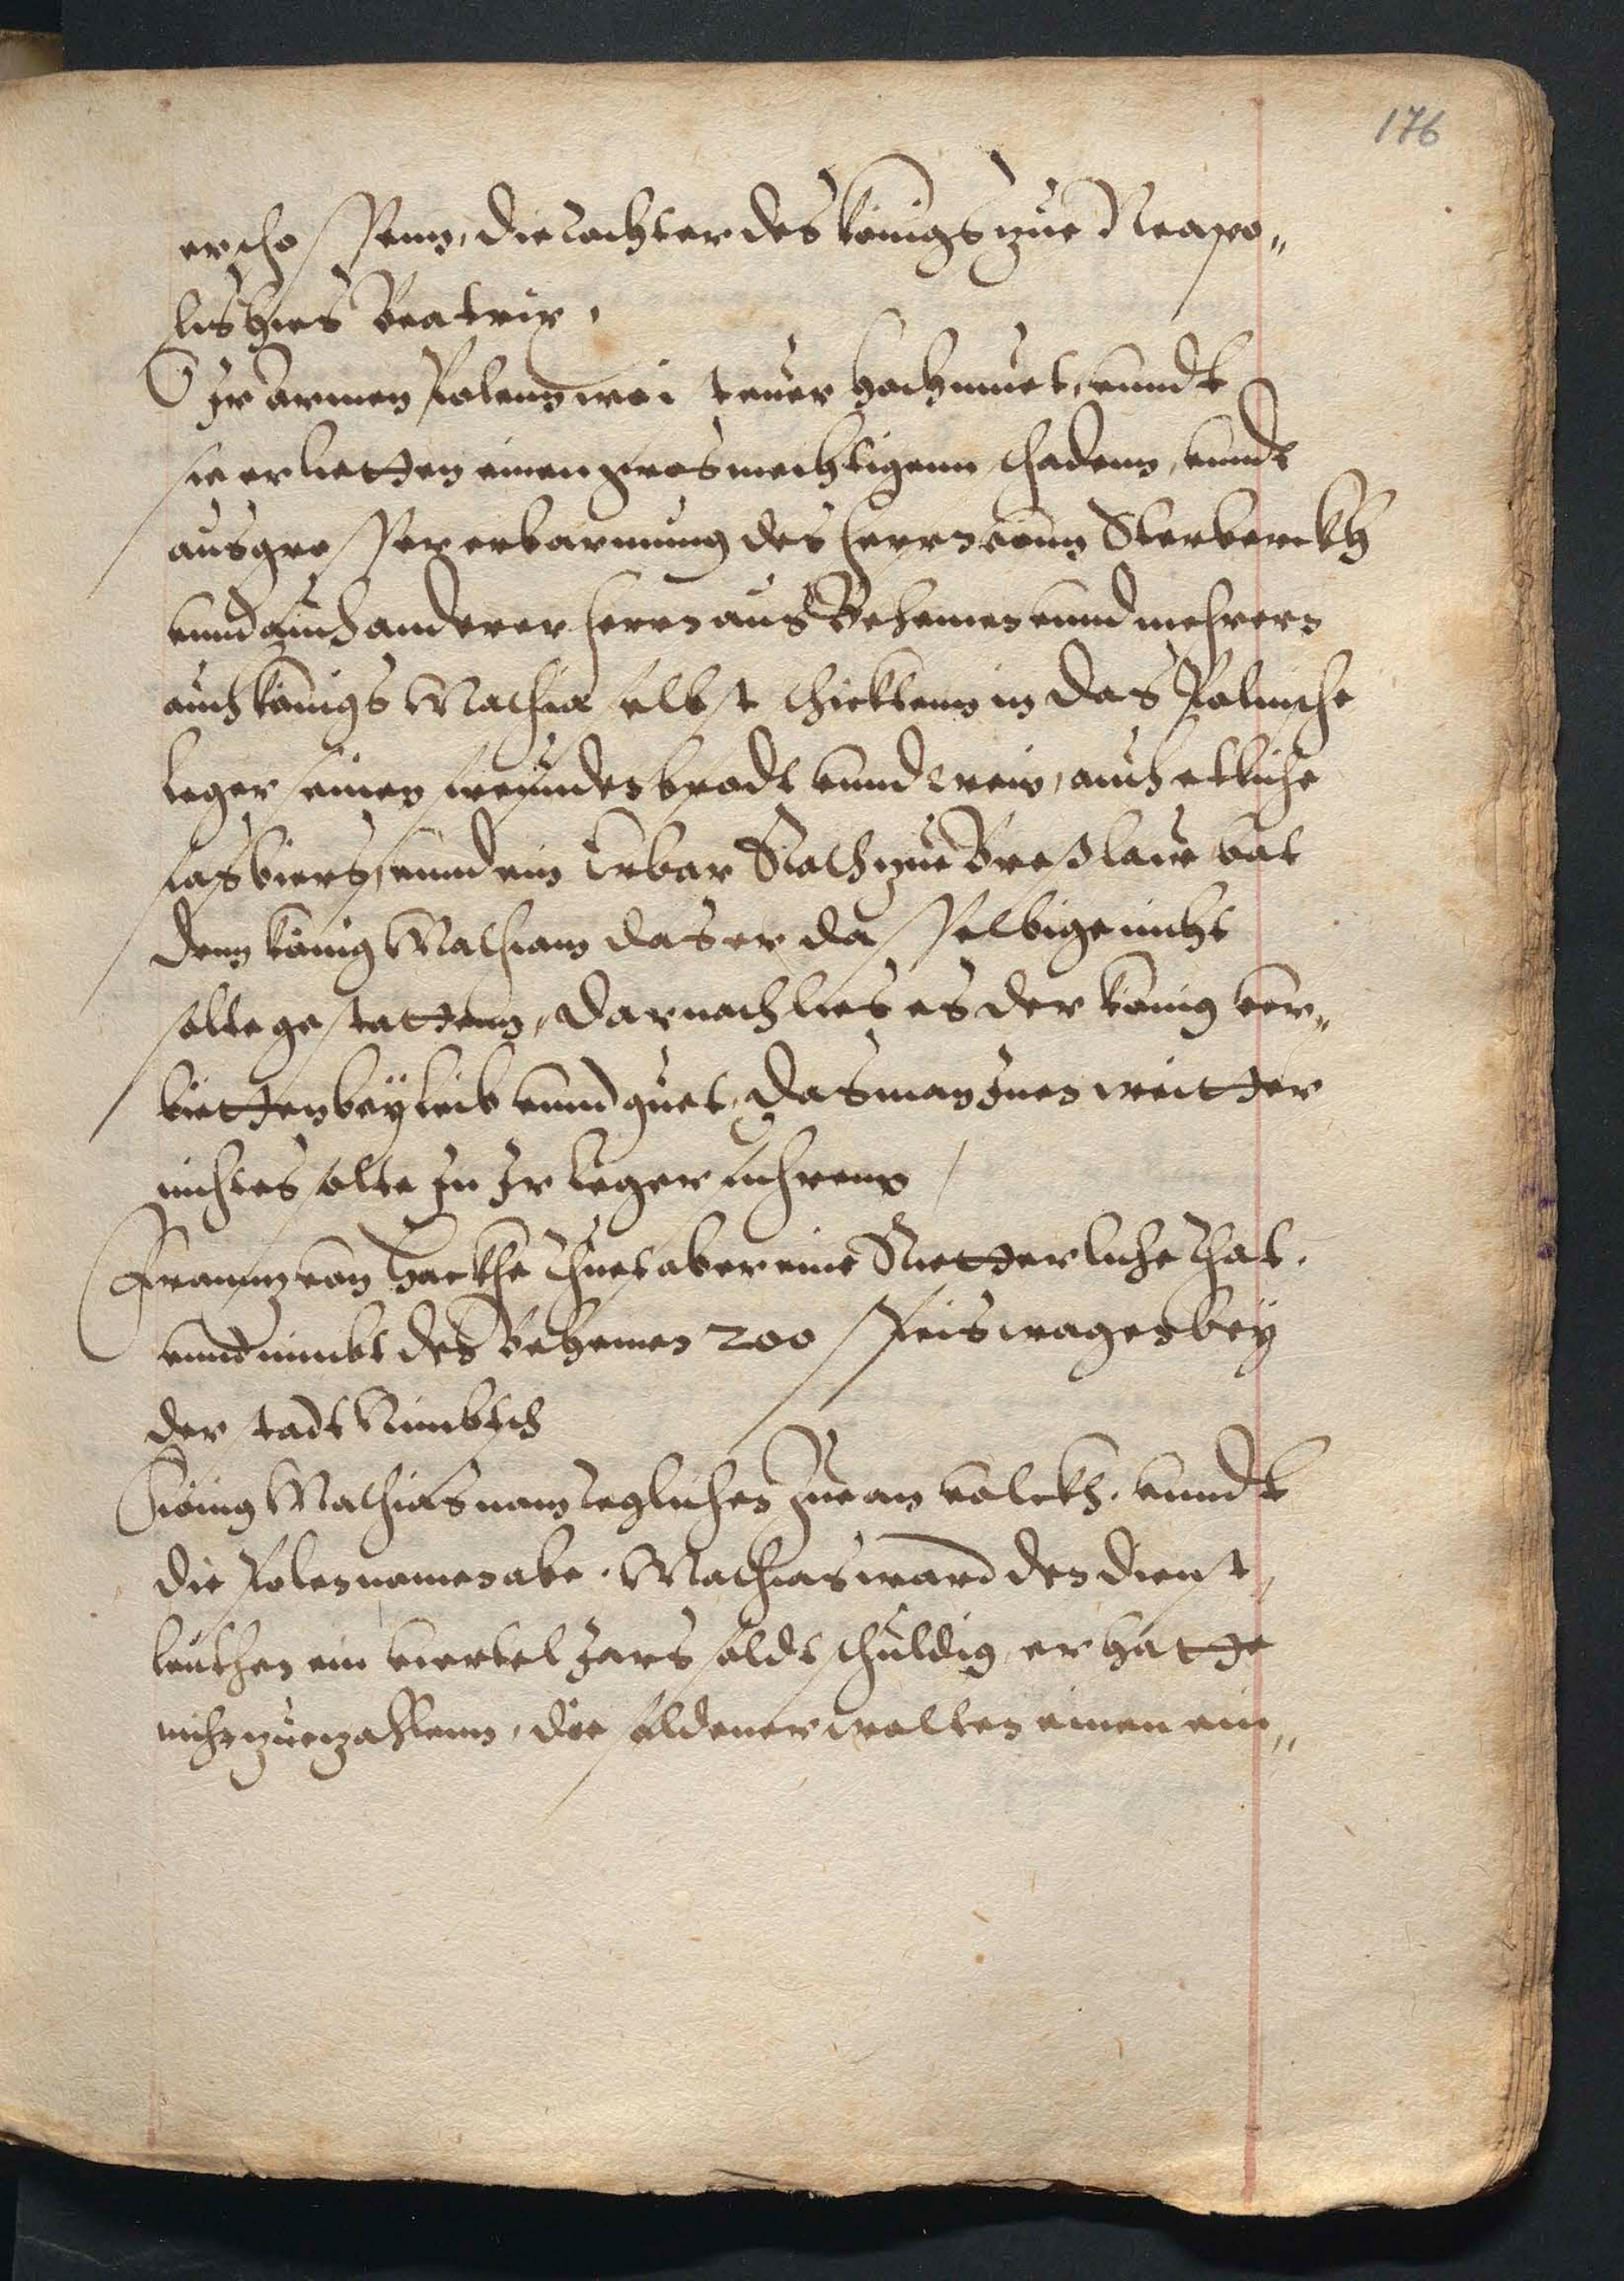 176
erschossenn, die tochter des königs zue Neapo„
lis hies Beatrix,
O Ir armen Polenn wie teuer hochmuet, vundt
sie erlietten einen grosmechtigenn schadenn, vundt
aus grosser erbarmung des herrn vonn Sterberckh
vnnd auch anderer herrn aus Behemen vnnd mehrern
auch königs Mathia selbst schicktenn in das Polnische
leger seinen freunden brodt vnnd wein, auch etliche
fas biers, vnnd ein Erbar Rath zue Breßlaw bat
denn könig Mathiam das er dasselbige nicht
solte gestattenn, darnach lies es der könig ver„
bietten bey leib vnnd guet, das man Inen weitter
nichtes solte In Ir leger fuhrenn
Frannz von Hackhe thuet aber eine Ritterliche that.
vnnd nimbt den Behemen 200 speiswagen bey
der stadt Nimbtsch
König Mathias nam teglichen Zue an volckh. vnndt
die Polen namen abe. Mathias ward den dienst
leuthen ein viertel Jars soldt schuldig, er hatte
nicht zue zahlenn, die soldener wolten einen ein„